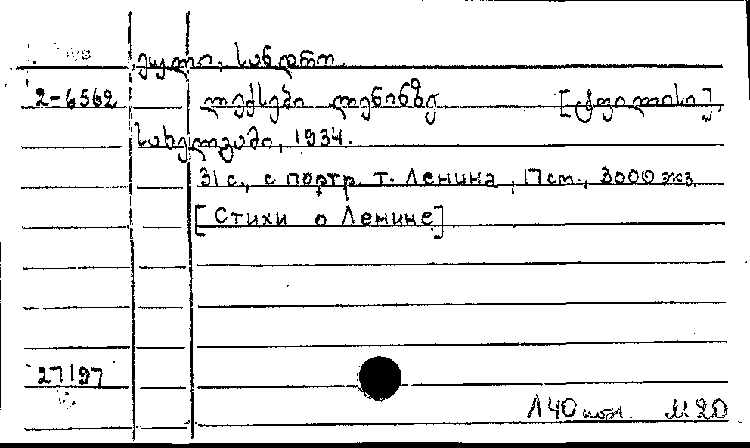 ეული, სანდრო.
2-6562 ლექსები ლენინზე [ტფილისი],
სახელგამი, 1934.
31 с., с портр. т. Ленина, 17 см., 3000 экз.
[Стихи о Ленине]
27197
Л 40 коп. М20